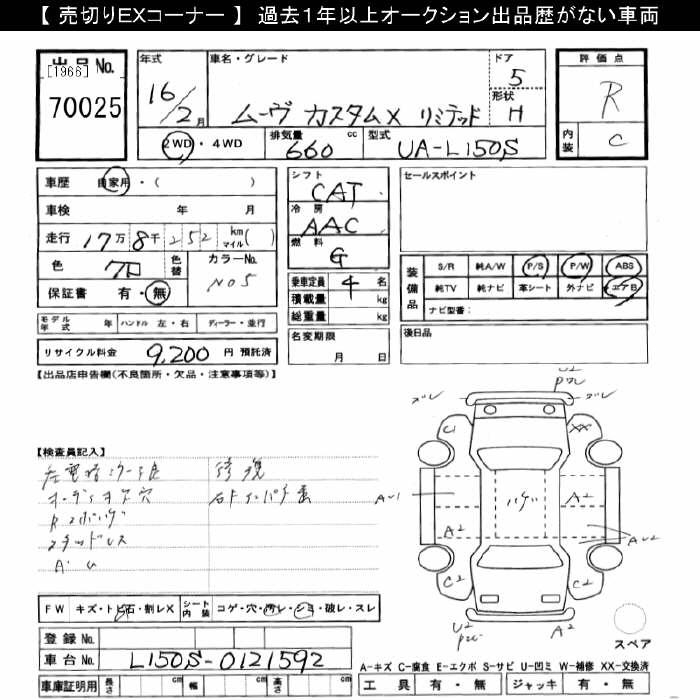 【 売切りEXコーナー 】 過去１年以上オークション出品歴がない車両
出品No.
[1966]
70025
年式 16/2月
車名・グレード
ムーヴ カスタムX リミテッド
ドア 5
形状 H
評価点
R
内装 C
2WD・4WD
排気量 660 cc
型式 UA-L150S
車歴 自家用・( )
車検 年 月
走行 17万8千252 km マイル( )
色 クロ
色替
カラーNo. NO5
保証書 有・無
シフト CAT
冷房 AAC
燃料 G
乗車定員 4 名
積載量 kg
総重量 kg
セールスポイント
装備品
S/R 純A/W P/S P/W ABS
純TV 純ナビ 革シート 外ナビ エアB
ナビ型番:
モデル年式 年 ハンドル 左・右 ディーラー・並行
名変期限 月 日
後日品
リサイクル料金 9,200 円 預託済
【出品店申告欄(不良箇所・欠品・注意事項等)】
【検査員記入】
修現
オーディオ欠穴
スタッドレス
FW キズ・トビ石・割レX
シート内装 コゲ・穴・汚レ・シミ・破レ・スレ
登録No.
車台No. L150S-0121592
車庫証明用 長さ cm 幅 cm 高さ cm
U2
ズレ
ズレ
C1
XX
A-1
ハゲ
A2
A2
C2
C2
U2
A2
スペア
A-キズ C-腐食 E-エクボ S-サビ U-凹ミ W-補修 XX-交換済
工具 有・無 ジャッキ 有・無